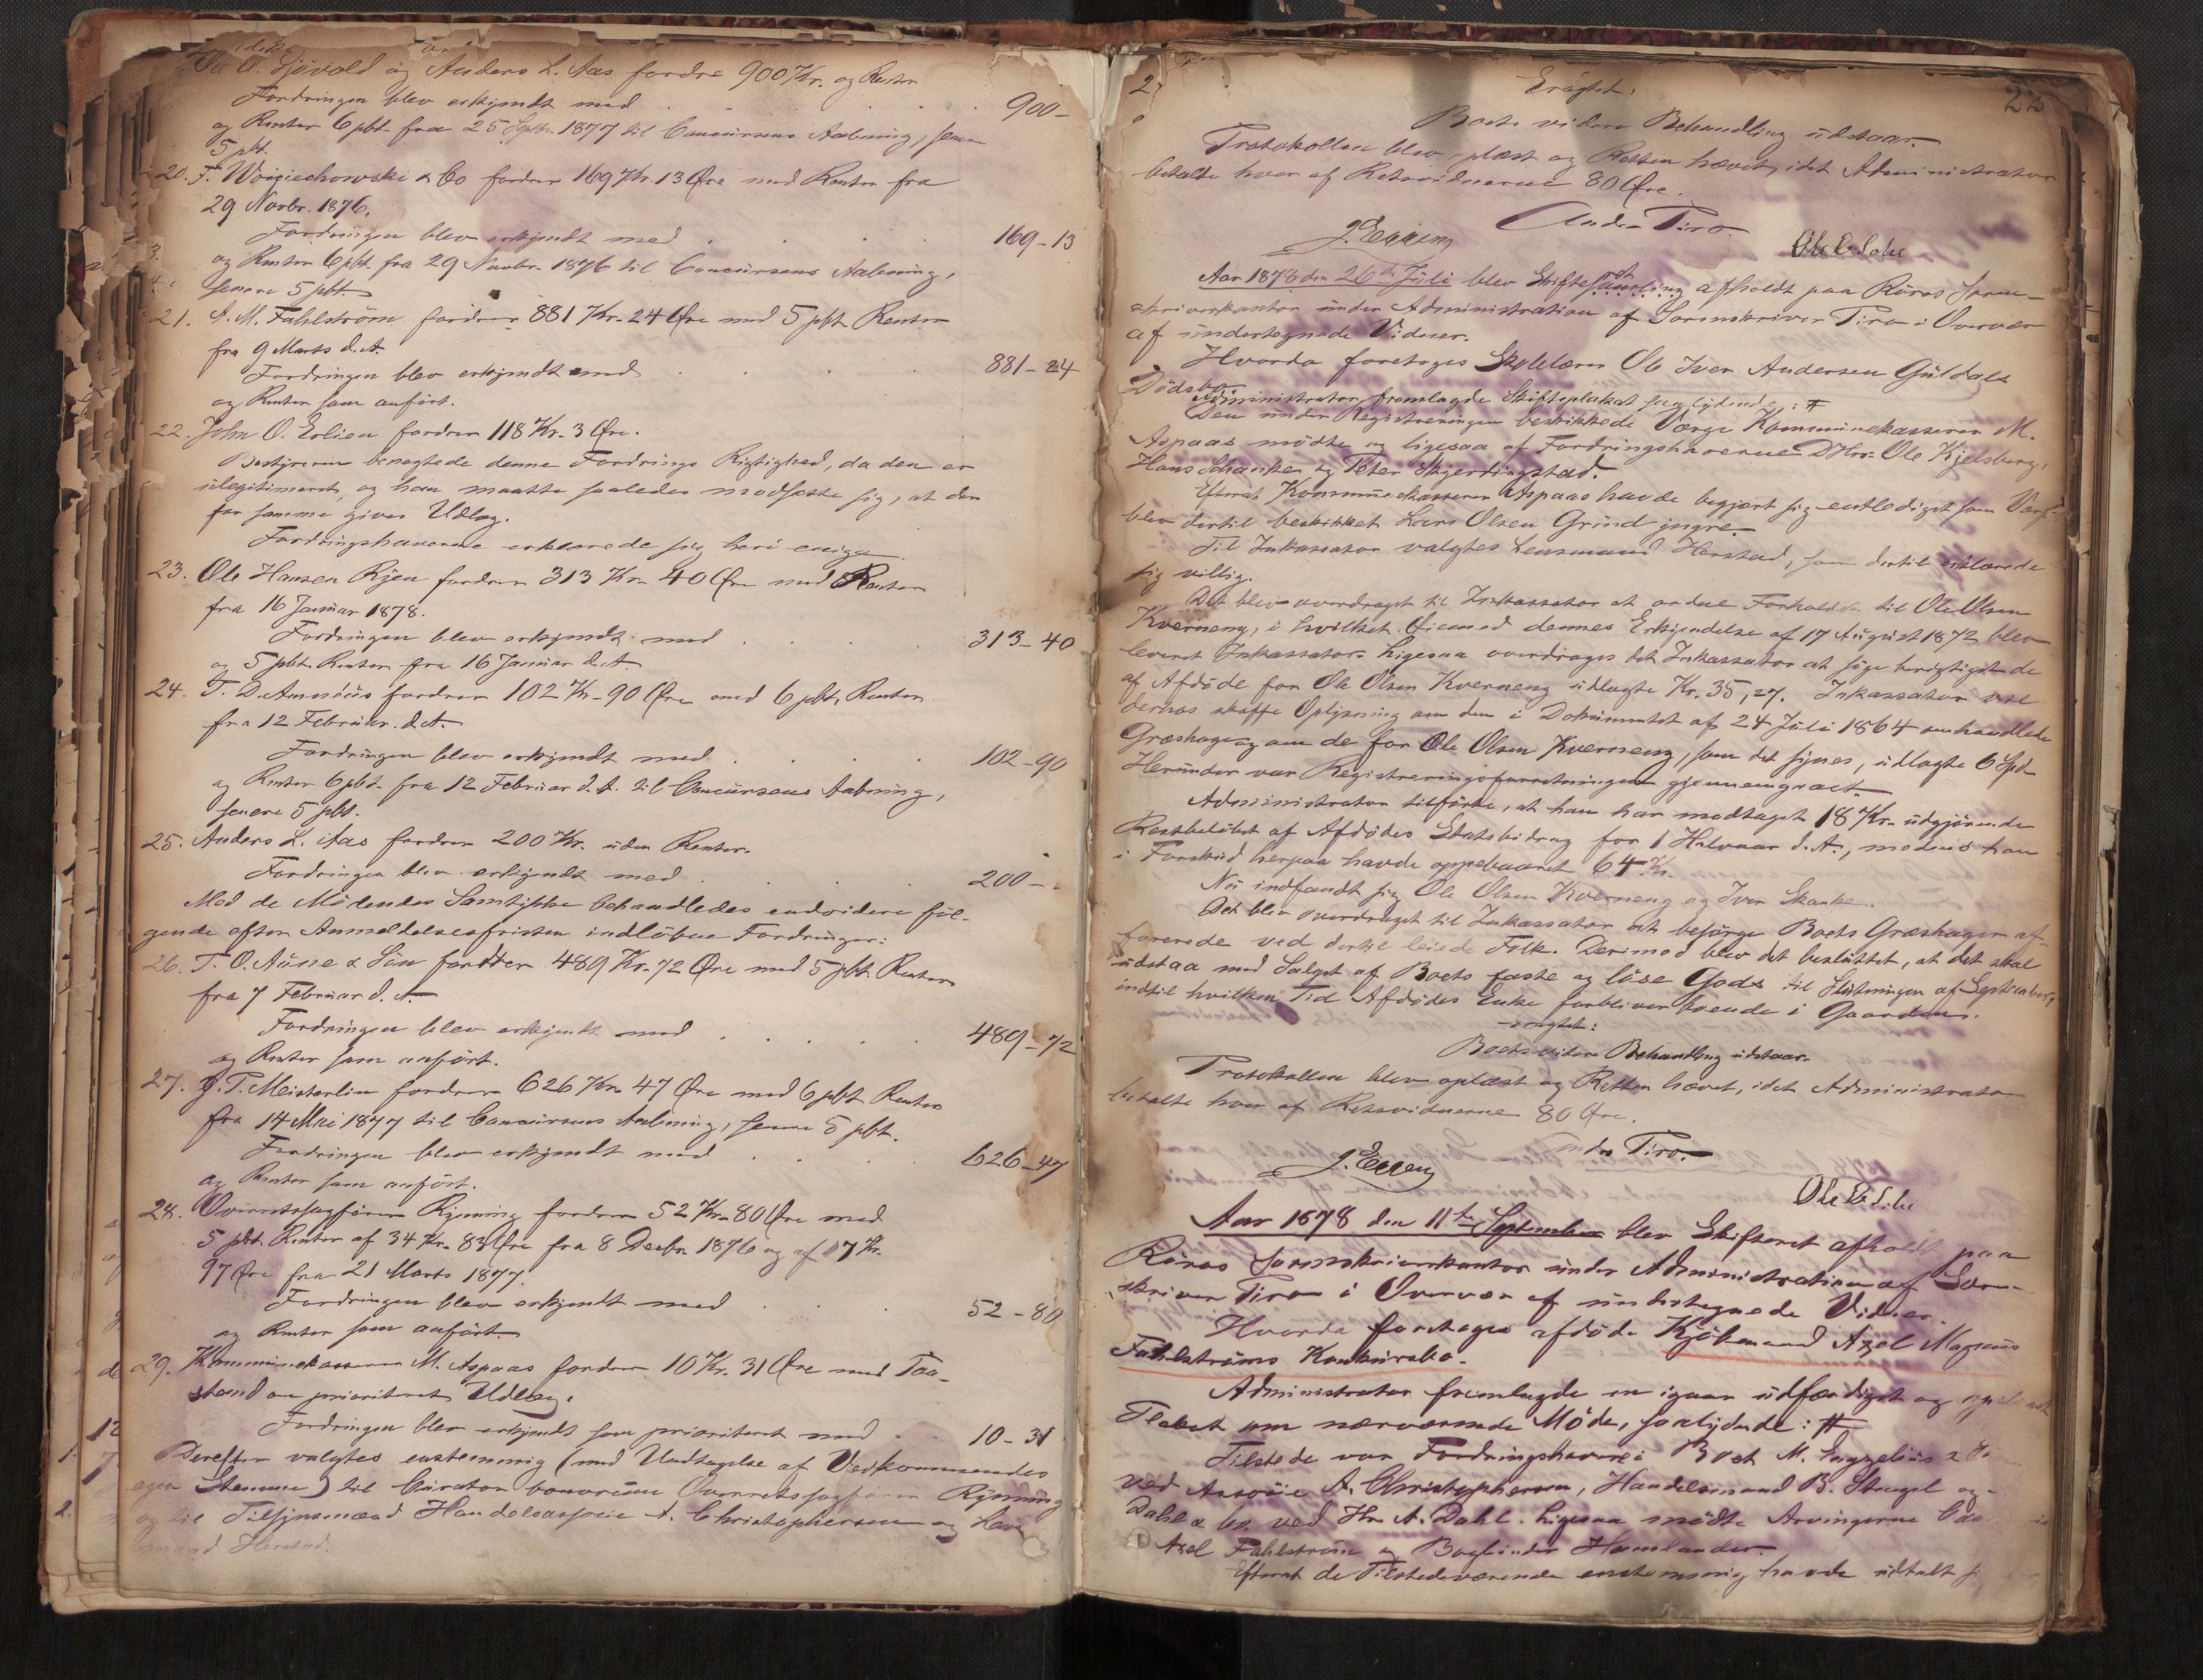 Ole O. Sjövold og Anders L. Aas fordre 900 Kr. og Renter
Fordringen blev erkjendt med . . . . 900 -
og Renter 6 pbt. fra 25 Septbr. 1877 til Concursens Aabning, senere
5 pbt.
20. F. Woiciechowski & Co fordrer 169 Kr. 13 Øre med Renter fra
29 Novbr. 1876.
Fordringen blev erkjendt med . . . . 169 - 13
og Renter 6 pbt. fra 29 Novbr. 1876 til Concursens Aabning,
senere 5 pbt.
21. A. M. Fahlström fordrer 881 Kr. 24 Øre med 5 pbt. Renter
fra 9 Marts d. A.
Fordringen blev erkjendt med . . . . 881 - 24
og Renter som anført.
22. John O. Erlien fordrer 118 Kr. 3 Øre.
Bestyreren benegtede denne Fordrings Rigtighed, da den er
ulegitimeret, og han maatte saaledes modsætte sig, at der
for samme gives Udlæg.
Fordringshaverne erklærede sig heri enige.
23. Ole Hansen Ryen fordrer 313 Kr. 40 Øre med Renter
fra 16 Januar 1878.
Fordringen blev erkjendt med . . . . 313 - 40
og 5 pbt. Renter fra 16 Januar d. A.
24. T. D. Amnéus fordrer 102 Kr. 90 Øre med 6 pbt. Renter
fra 12 Februar d. A.
Fordringen blev erkjendt med . . . . 102 - 90
og Renter 6 pbt. fra 12 Februar d. A. til Concursens Aabning,
senere 5 pbt.
25. Anders L. Aas fordrer 200 Kr. uden Renter.
Fordringen blev erkjendt med . . . . 200 -
Med de Mödendes Samtykke behandledes endvidere föl-
gende efter Anmeldelsesfristen indlöbne Fordringer:
26. T. O. Aune & Sön fordrer 489 Kr. 72 Øre med 5 pbt. Renter
fra 7 Februar d. A.
Fordringen blev erkjendt med . . . . 489 - 72
og Renter som anført.
27. J. T. Meisterlin fordrer 626 Kr. 47 Øre med 6 pbt. Renter
fra 14 Mai 1877 til Concursens Aabning, senere 5 pbt.
Fordringen blev erkjendt med . . . . 626 - 47
og Renter som anført.
28. Overretssagfører Rynning fordrer 52 Kr. 80 Øre med
5 pbt. Renter af 34 Kr. 83 Øre fra 8 Decbr. 1876 og af 17 Kr.
97 Øre fra 21 Marts 1877.
Fordringen blev erkjendt med . . . 52 - 80
og Renter som anført.
29. Kommunekasserer M. Aspaas fordrer 10 Kr. 31 Øre med Paa-
stand om prioriteret Udlæg.
Fordringen blev erkjendt som prioriteret med . . 10 - 31
Derefter valgtes enstemmig (med Undtagelse af Vedkommendes
egen Stemme) til Curator bonorum Overretssagfører Rynning
og til Tilsynsmænd Handelsassocie A. Christophersen og Lens
mand Herstad.
22
Eragtet:
Boets videre Behandling udstaar.
Protokollen blev oplæst og Retten hævet, idet Administrator
betalte hver af Retsvidnerne 80 Øre.
Anders Tiro.
J. Eggen
Ole E Solie
Aar 1878 den 26de Juli blev Skifteret afholdt paa Röros Soren-
skriverkontor under Administration af Sorenskriver Tiro i Overvær
af undertegnede Vidner.
Hvorda foretoges Skolelærer Ole Iver Andersen Guldals
Dödsbo.
Administrator fremlagde Skifteplakat saalydende: #
Den under Registreringen beskikkede Værge Kommunekasserer M.
Aspaas mödte og ligesaa af Fordringshaverne DHrr. Ole Kjelsberg,
Hans Schanker og Peter Skjerdingstad.
Efterat Kommunekasserer Aspaas havde begjært sig entlediget som Værge
blev dertil beskikket Lars Olsen Grind yngre.
Til Inkassator valgtes Lensmand Herstad, som dertil erklærede
sig villig.
Det blev overdraget til Inkassator at ordne Forholdet til Ole Olsen
Kverneng, i hvilket Öiemed dennes Erkjendelse af 17 August 1872 blev
leveret Inkassator. Ligesaa overdroges det Inkassator at söge berigtiget de
af Afdöde for Ole Olsen Kverneng udlagte Kr. 35,27. Inkassator vil
derhos skaffe Oplysning om den i Dokumentet af 24 Juli 1864 omhandlede
Græshage og om de for Ole Olsen Kverneng, som det synes, udlagte 6 Spd.
Herunder var Registreringsforretningen gjennemgaaet.
Administrator tilförte, at han har modtaget 18 Kr. udgjörende
Restbelöbet af Afdödes Statsbidrag for 1 Halvaar d. A., medens han
i Forskud herpaa havde oppebaaret 64 Kr.
Nu indfandt sig Ole Olsen Kverneng og Iver Skanke.
Det blev overdraget til Inkassator at besörge Boets Græshager af-
ved dertil leiede Folk. Derimod blev det besluttet, at det skal
udstaa med Salget af Boets faste og löse Gods til Slutningen af September,
indtil hvilken Tid Afdödes Enke forbliver boende i Gaarden.
Eragtet:
Boets videre Behandling udstaar.
Protokollen blev oplæst og Retten hævet, idet Administrator
betalte hver af Retsvidnerne 80 Øre.
Anders Tiro.
J. Eggen
Ole E Solie
Aar 1878 den 11te September blev Skifteret afholdt paa
Röros Sorenskriverkontor under Administration af Soren-
skriver Tiro i Overvær af undertegnede Vidner.
Hvorda foretoges afdöde Kjöbmand Axel Magnus
Fahlströms Konkursbo.
Administrator fremlagde en igaar udfærdiget og
Placat om nærværende Möde, saalydende: #
Tilstede var Fordringshavere i Boet M. Engzelius &
ved Associe A. Christophersen, Handelsmand B. Stengel og
Dahl & Co. ved Hr. A. Dahl. Ligesaa mödte Arvingerne
Axel Fahlström og Bogbinder Hamlander.
Efterat de Tilstedeværende enstemmig havde udtalt